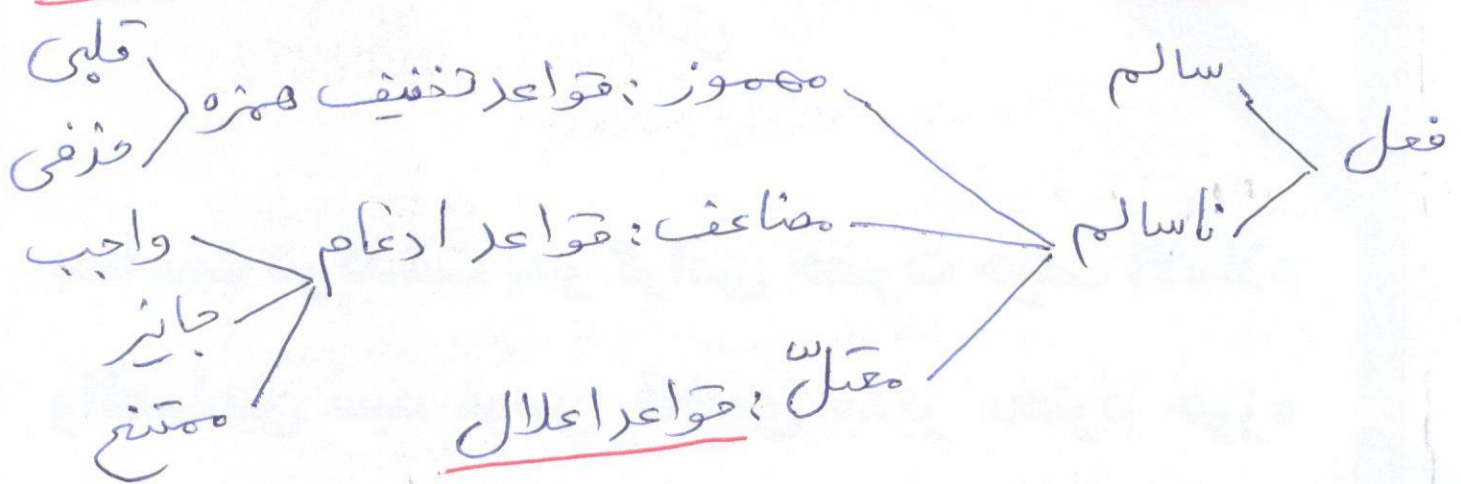 فعل
سالم
ناسالم
مهموز : قواعد تخفیف همزه
قلبی
حذفی
مضاعف : قواعد ادغام
واجب
جایز
ممتنع
معتلّ : قواعد اعلال